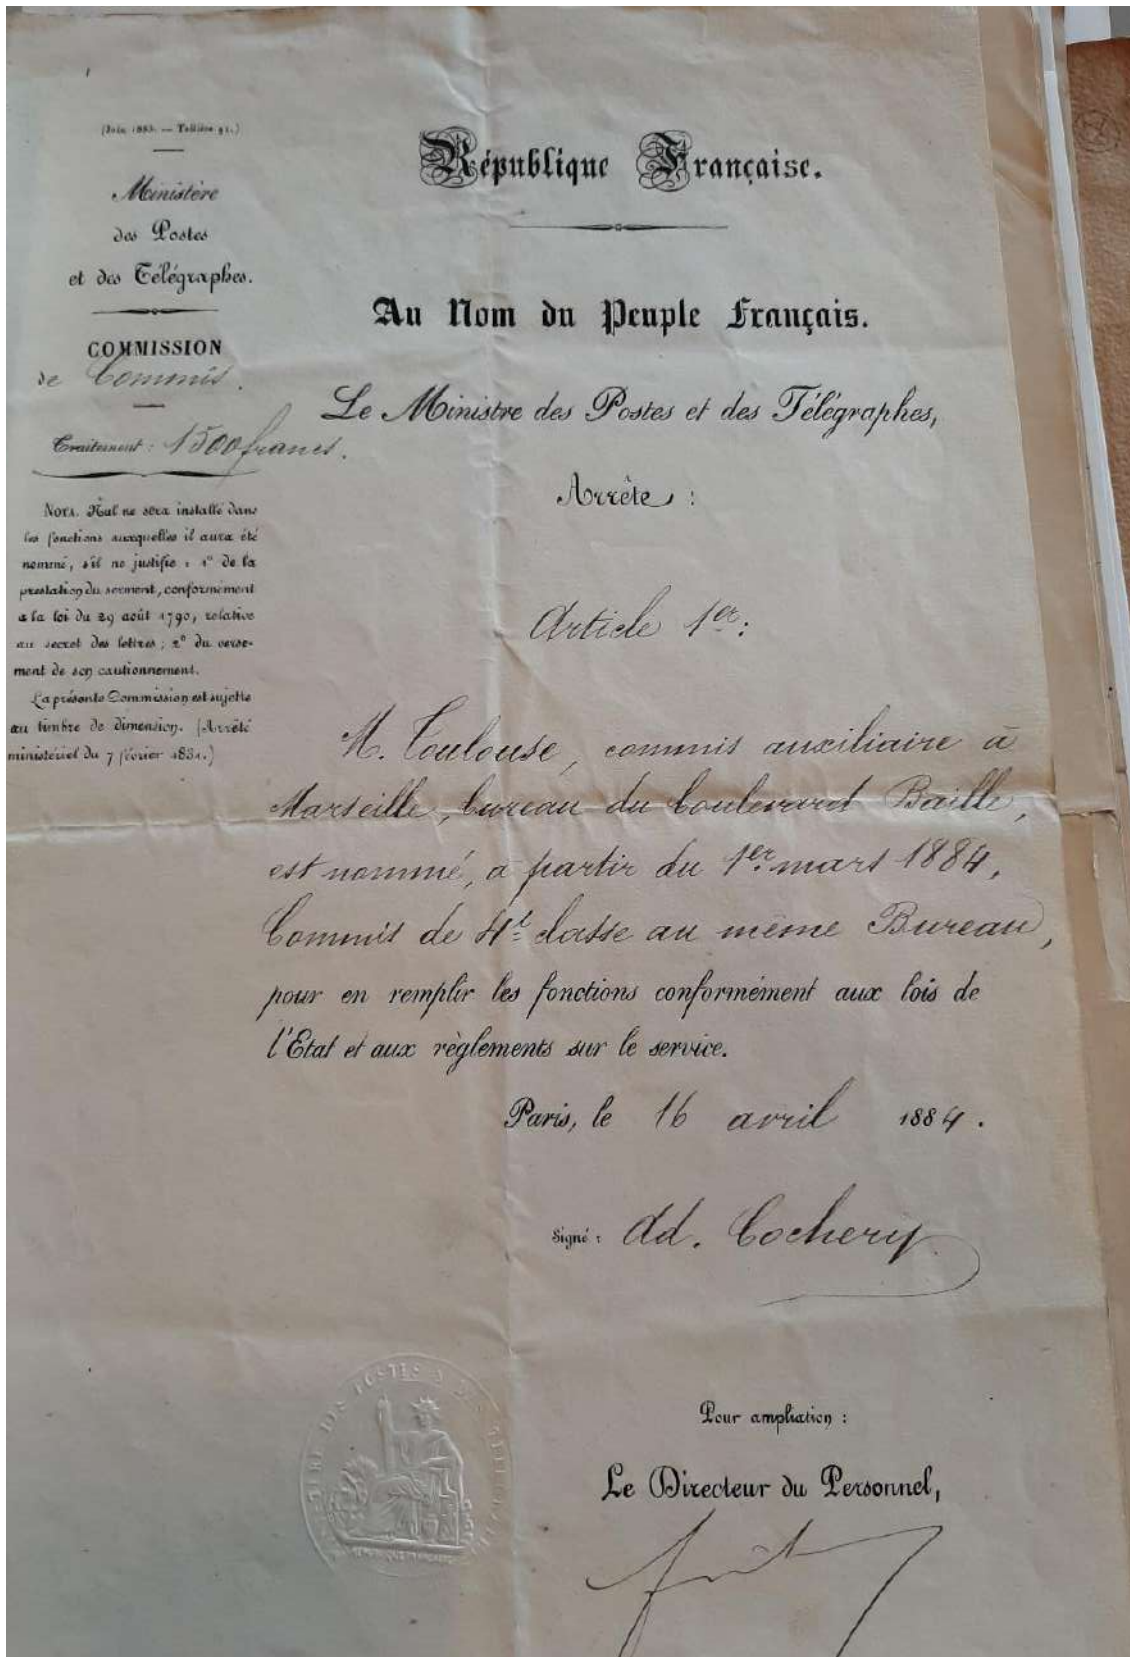 (Juin 1883. — Tellière 91.)
Ministère
des Postes
et des Télégraphes.
COMMISSION
de Commis.
Traitement : 1500 francs.
NOTA. Nul ne sera installé dans
les fonctions auxquelles il aura été
nommé, s'il ne justifie : 1º de la
prestation du serment, conformément
à la loi du 29 août 1790, relative
au secret des lettres ; 2º du verse-
ment de son cautionnement.
La présente Commission est sujette
au timbre de dimension. (Arrêté
ministériel du 7 février 1831.)
République Française.
Au Nom du Peuple Français.
Le Ministre des Postes et des Télégraphes,
Arrête :
Article 1er :
M. Toulouse, commis auxiliaire à
Marseille, bureau du boulevard Baille,
est nommé, à partir du 1er mars 1884,
Commis de 4e classe au même Bureau,
pour en remplir les fonctions conformément aux lois de
l'État et aux règlements sur le service.
Paris, le 16 avril 1884.
Signé : Ad. Cochery
Pour ampliation :
Le Directeur du Personnel,